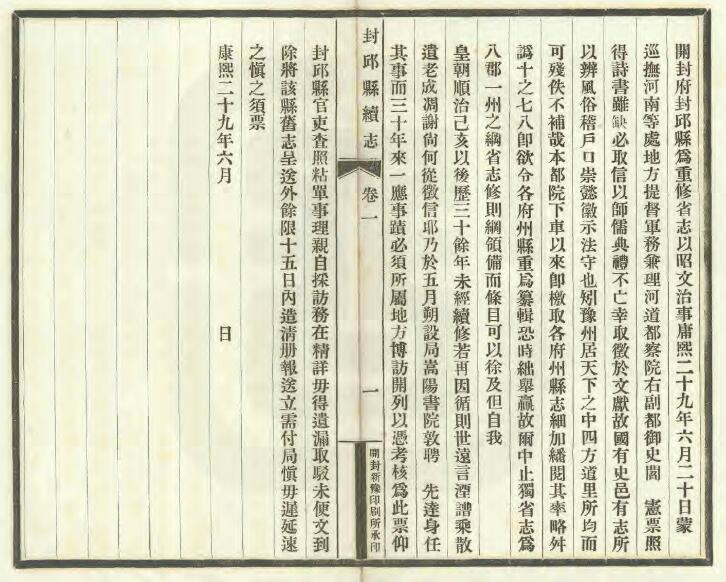 開封府封邱縣爲重修省志以昭文治事康熙二十九年六月二十日蒙
巡撫河南等處地方提督軍務兼理河道都察院右副都御史閻　憲票照
得詩書雖缺必取信以師儒典禮不亡幸取徵於文獻故國有史邑有志所
以辨風俗稽戶口崇懿徽示法守也矧豫州居天下之中四方道里所均而
可殘佚不補哉本都院下車以來卽檄取各府州縣志細加繙閱其率略舛
譌十之七八卽欲令各府州縣重爲纂輯恐時絀舉贏故爾中止獨省志爲
八郡一州之綱省志修則綱領備而條目可以徐及但自我
皇朝順治己亥以後歷三十餘年未經續修若再因循則世遠言湮譜乘散
遺老成凋謝尙何從徵信耶乃於五月朔設局嵩陽書院敦聘　先達身任
其事而三十年來一應事蹟必須所屬地方博訪開列以憑考核爲此票仰
封邱縣續志
卷一
一
開封新豫印刷所承印
封邱縣官吏查照粘單事理親自採訪務在精詳毋得遺漏取駁未便文到
除將該縣舊志呈送外餘限十五日內造淸册報送立需付局愼毋遲延速
之愼之須票
康熙二十九年六月　　　日